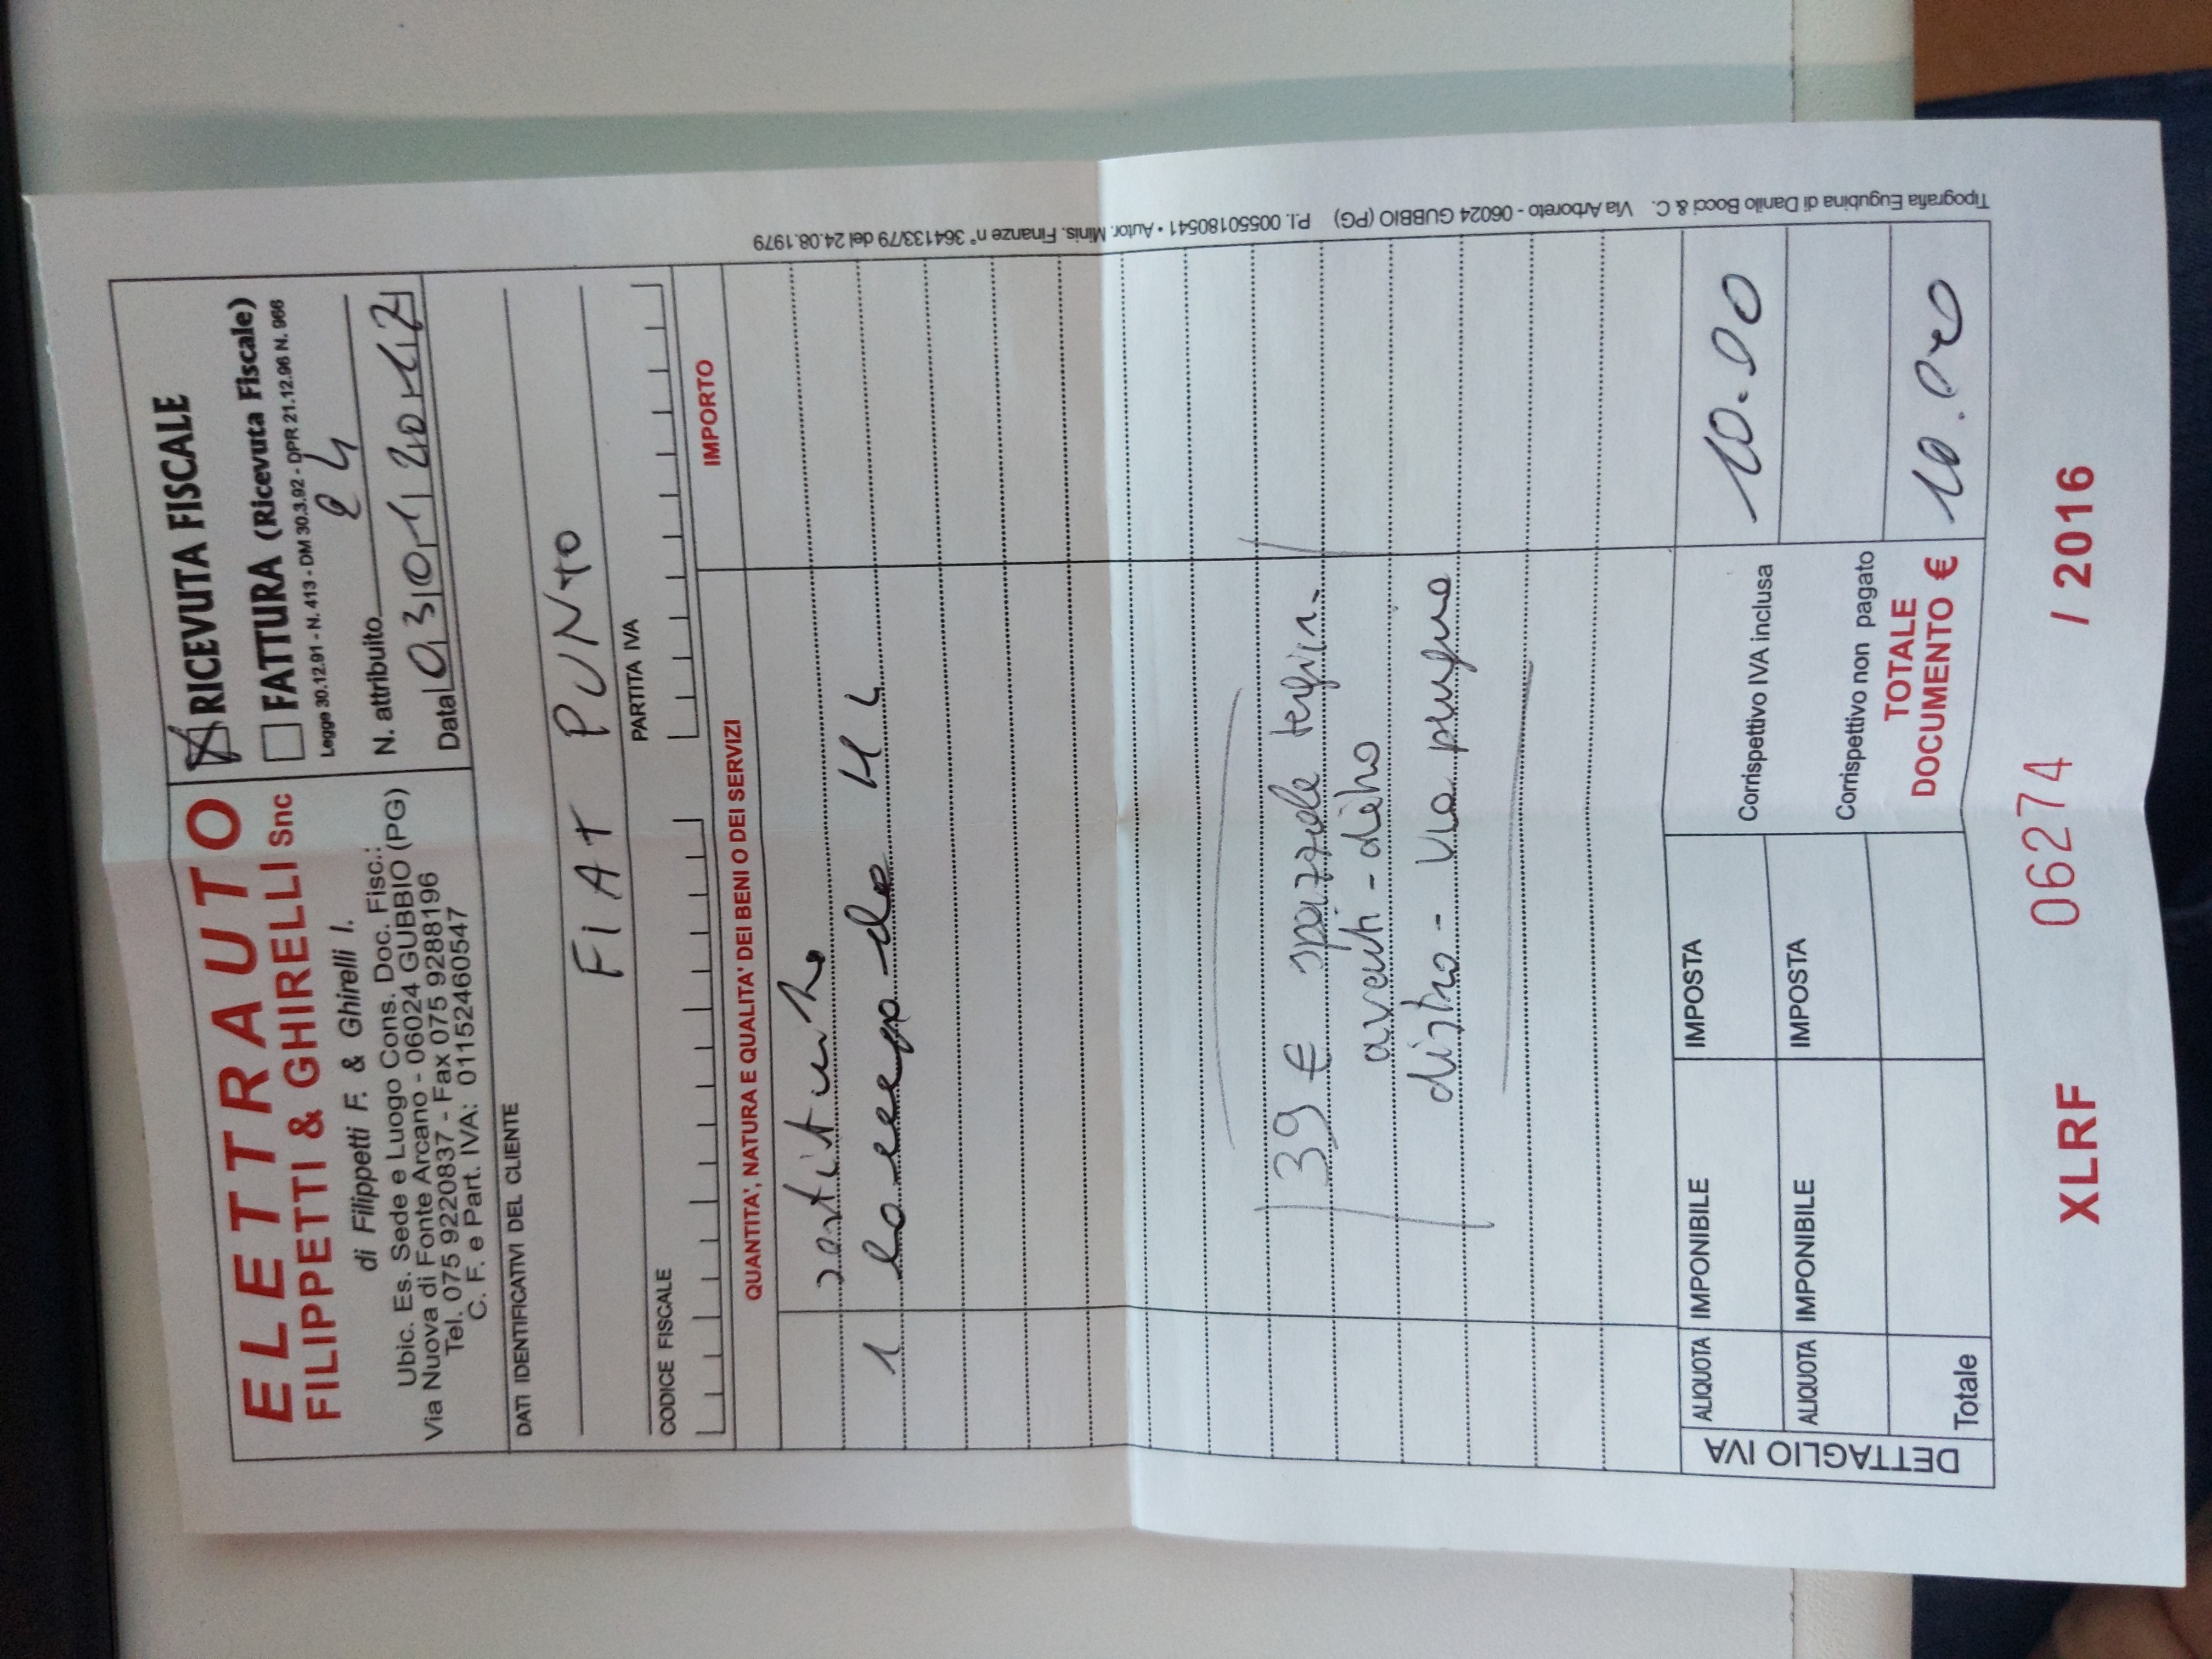 ELETTRAUTO
FILIPPETTI & GHIRELLI Snc
di Filippetti F. & Ghirelli I.
Ubic. Es. Sede e Luogo Cons. Doc. Fisc.:
Via Nuova di Fonte Arcano - 06024 GUBBIO (PG)
Tel. 075 9220837 - Fax 075 9288196
C. F. e Part. IVA: 01152460547
RICEVUTA FISCALE
FATTURA (Ricevuta Fiscale)
Legge 30.12.91 - N. 413 - DM 30.3.92 - DPR 21.12.96 N. 966
N. attribuito 24
Data 03 01 2017
DATI IDENTIFICATIVI DEL CLIENTE
FIAT PUNTO
CODICE FISCALE
PARTITA IVA
QUANTITA', NATURA E QUALITA' DEI BENI O DEI SERVIZI
IMPORTO
sostituito
1 lampada H4
39 € spazzole tergicr.
avanti - dietro
distro - Via perugia
DETTAGLIO IVA
ALIQUOTA IMPONIBILE IMPOSTA
ALIQUOTA IMPONIBILE IMPOSTA
Totale
Corrispettivo IVA inclusa 10.00
Corrispettivo non pagato
TOTALE
DOCUMENTO € 10.00
XLRF 06274 / 2016
Tipografia Eugubina di Danilo Bocci & C. Via Arboreto - 06024 GUBBIO (PG) P.I. 00550180541 • Autor. Minis. Finanze n° 364133/79 del 24.08.1979